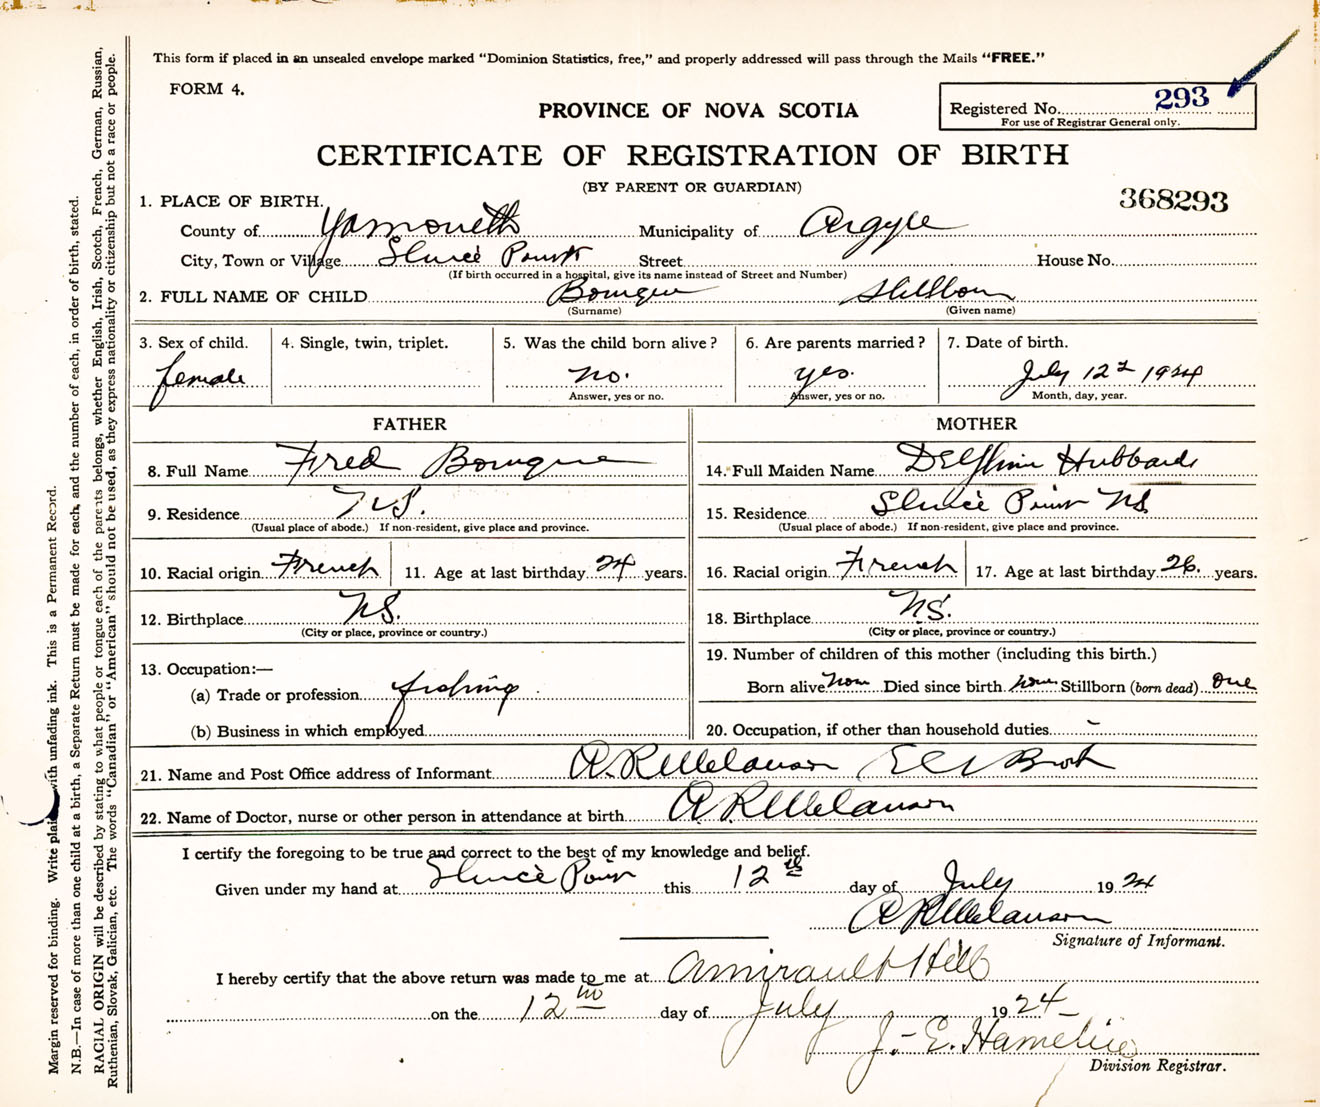 This form if placed in an unsealed envelope marked "Dominion Statistics, free," and properly addressed will pass through the Mails "FREE."
FORM 4.
Registered No. 293
For use of Registrar General only.
PROVINCE OF NOVA SCOTIA
CERTIFICATE OF REGISTRATION OF BIRTH
(BY PARENT OR GUARDIAN)
368293
1. PLACE OF BIRTH.
County of Yarmouth Municipality of Argyle
City, Town or Village Sluice Point Street House No.
(If birth occurred in a hospital, give its name instead of Street and Number)
2. FULL NAME OF CHILD Bourque Stillborn
(Surname) (Given name)
3. Sex of child. 4. Single, twin, triplet. 5. Was the child born alive? 6. Are parents married? 7. Date of birth.
female no. yes. July 12 1924
Answer, yes or no. Answer, yes or no. Month, day, year.
FATHER MOTHER
8. Full Name Fred Bourque 14. Full Maiden Name Delphine Hubbard
9. Residence N.S. 15. Residence Sluice Point NS
(Usual place of abode.) If non-resident, give place and province. (Usual place of abode.) If non-resident, give place and province.
10. Racial origin French 11. Age at last birthday 24 years. 16. Racial origin French 17. Age at last birthday 26. years.
12. Birthplace NS. 18. Birthplace NS.
(City or place, province or country.) (City or place, province or country.)
13. Occupation:— 19. Number of children of this mother (including this birth.)
(a) Trade or profession fishing Born alive none Died since birth none Stillborn (born dead) one
(b) Business in which employed 20. Occupation, if other than household duties -
21. Name and Post Office address of Informant A. R Melanson Eel Brook
22. Name of Doctor, nurse or other person in attendance at birth A R Melanson
I certify the foregoing to be true and correct to the best of my knowledge and belief.
Given under my hand at Sluice Point this 12th day of July 1924
A R Melanson
Signature of Informant.
I hereby certify that the above return was made to me at Amirault Hill
on the 12 day of July 1924
J.-E. Hamelin
Division Registrar.
Margin reserved for binding. Write plainly with unfading ink. This is a Permanent Record.
N.B.—In case of more than one child at a birth, a Separate Return must be made for each, and the number of each, in order of birth, stated.
RACIAL ORIGIN will be described by stating to what people or tongue each of the parents belongs, whether English, Irish, Scotch, French, German, Russian,
Ruthenian, Slovak, Galician, etc. The words "Canadian" or "American" should not be used, as they express nationality or citizenship but not a race or people.